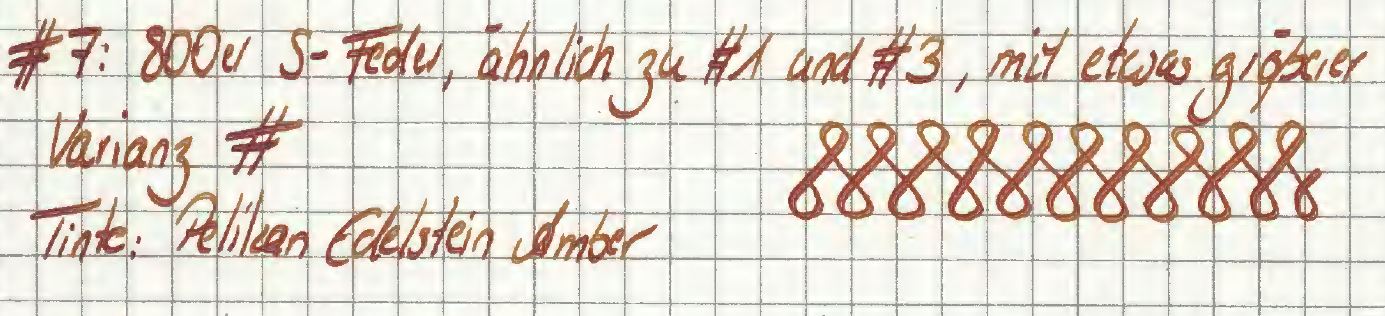 #7: 800er S-Feder, ähnlich zu #1 und #3, mit etwas größerer
Varianz #
Tinte: Pelikan Edelstein Amber